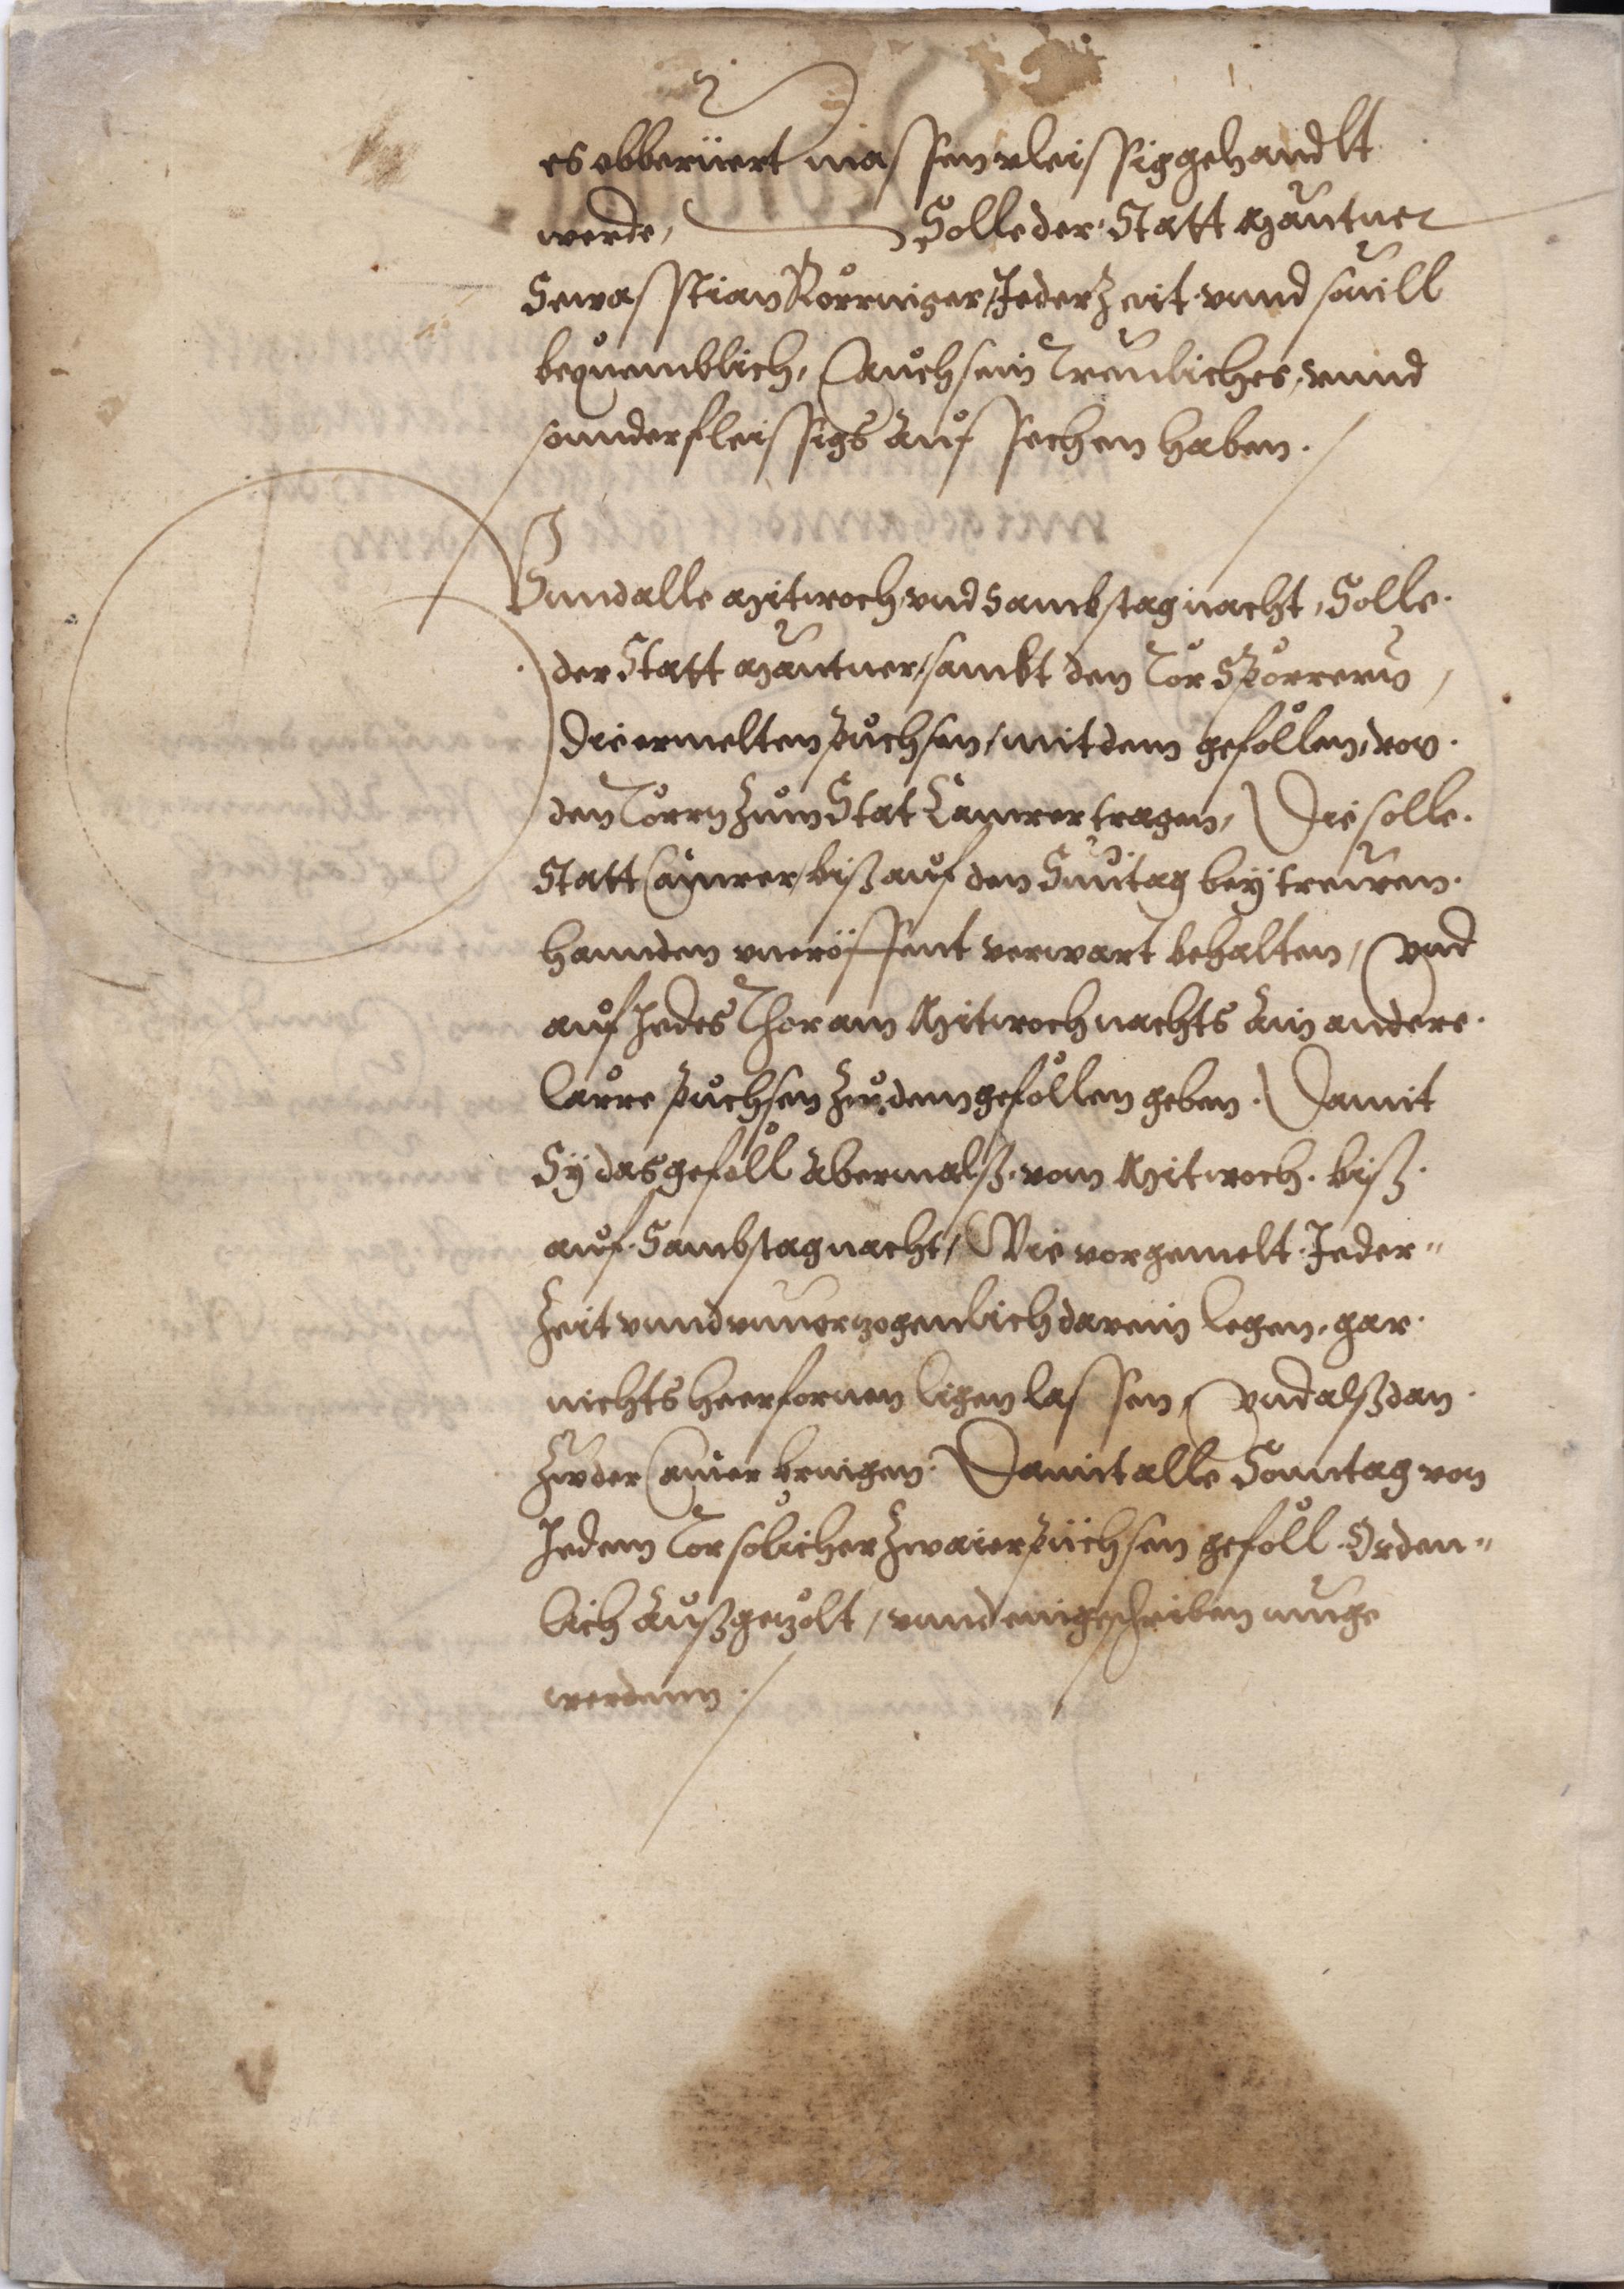 es obberüert massen vleissig gehandlt
werde, Solle der Statt Mautner
Sewasstian Jederzeit vnnd souill
bequemblich, Auch sein Treuliches, vnnd
sonnder fleissigs auf sechen haben.
Vnnd alle Mitwoch vnd Sambstag nacht, Solle
der Statt Mautner, sambt den Tor Spörrern,
Die ermelten püchsen, mit dem geföllen, von
den Torrn zum Stat Camrer tragen, Die solle
Statt Camrer, biß auf den Suntag bey treuen
hannden vneröffent verwart behalten, vnd
auf Jedes Thor am Mitwoch nachts ain andere
Läre püchsen zu dem geföllen geben. Damit
Sy das geföll abermalß, vom Mitwoch, biß
auf Sambstag nacht, Wie vorgemelt Jeder-
Zeit vnnd vnuerzogenlich darein legen, gar
nichts heerfornen ligen lassen, vnd alßdan
zu der Camer bringen. Damit alle Sonntag von
Jedem Tor solicher zwaier püchsen geföll Orden-
lich außgezölt, vnnd eingeschriben muge
werdenn.